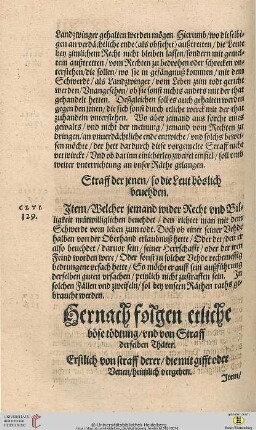 Landzwinger gehalten werden mögen. Hierumb/ wo dieselbi-
gen an verdächtliche ende (als obsteht) außtretten/ die Leute
bey zimlichem Recht nicht bleiben lassen/ sondern mit gemel-
tem außtretten/ vom Rechten zu bedrohen oder schrecken un-
terstehen/ die sollen/ wo sie in gefängnuß kommen/ mit dem
Schwerdt/ als Landzwinger/ vom Leben zum tode gericht
werden/ Unangesehen/ ob sie sonst nichts anders mit der that
gehandelt hetten. Deßgleichen soll es auch gehalten werden
gegen den jenen/ die sich sonst durch etliche werck mit der that
zuhandeln unterstehen. Wo aber jemand auß forcht eines
gewalts/ und nicht der meinung/ jemand vom Rechten zu
dringen/ an unverdächtliche ende entwiche/ und solches bewei-
sen möchte/ der hett dardurch diese vorgemelte Straff nicht
verwirckt/ Und ob darinn einicherley zweivel einfiel/ soll es
weiter unterrichtung an unser Räthe gelangen.
Straff der jenen/ so die Leut böslich
bevehden.
CLVI.
129.
Item/ Welcher jemand wider Recht und Bil-
ligkeit mutwilligklichen bevehdet/ den richtet man mit dem
Schwerdt vom leben zum tode. Doch ob einer seiner Vehde
halben von der Oberhand erlaubnuß hette/ Oder der/ den er
also bevehdet/ darvor sein/ seiner Herrschafft/ oder der
Feind worden were/ Oder sonst zu solcher Vehde rechtmessig
gedrungene ursach hette/ So möcht er auff sein außführung
derselben guten ursachen/ peinlich nicht zustraffen sein. In
solchen fällen und zweifeln/ sol bey unsern Räthen raths ge-
braucht werden.
Hernach folgen etliche
böse tödtung/ und von Straff
derselben Thäter.
Erstlich von straff derer/ die mit gifft oder
Venen/ heimlich vergeben.
Item/
© Universitätsbibliothek Heidelberg